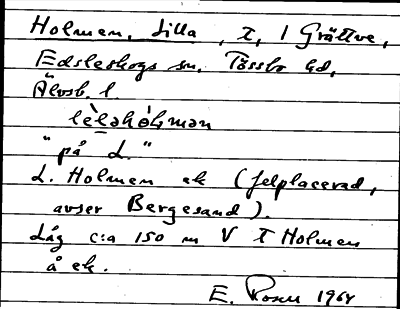 Holmen, Lilla, t, i Grättve,
Edsleskogs sn. Tössbo hd,
Älvsb. l.
lèlahólman
"på L."
L. Holmen ek (felplacerad,
avser Bergesand).
Låg c:a 150 m V T Holmen
å ek.
E. 1964